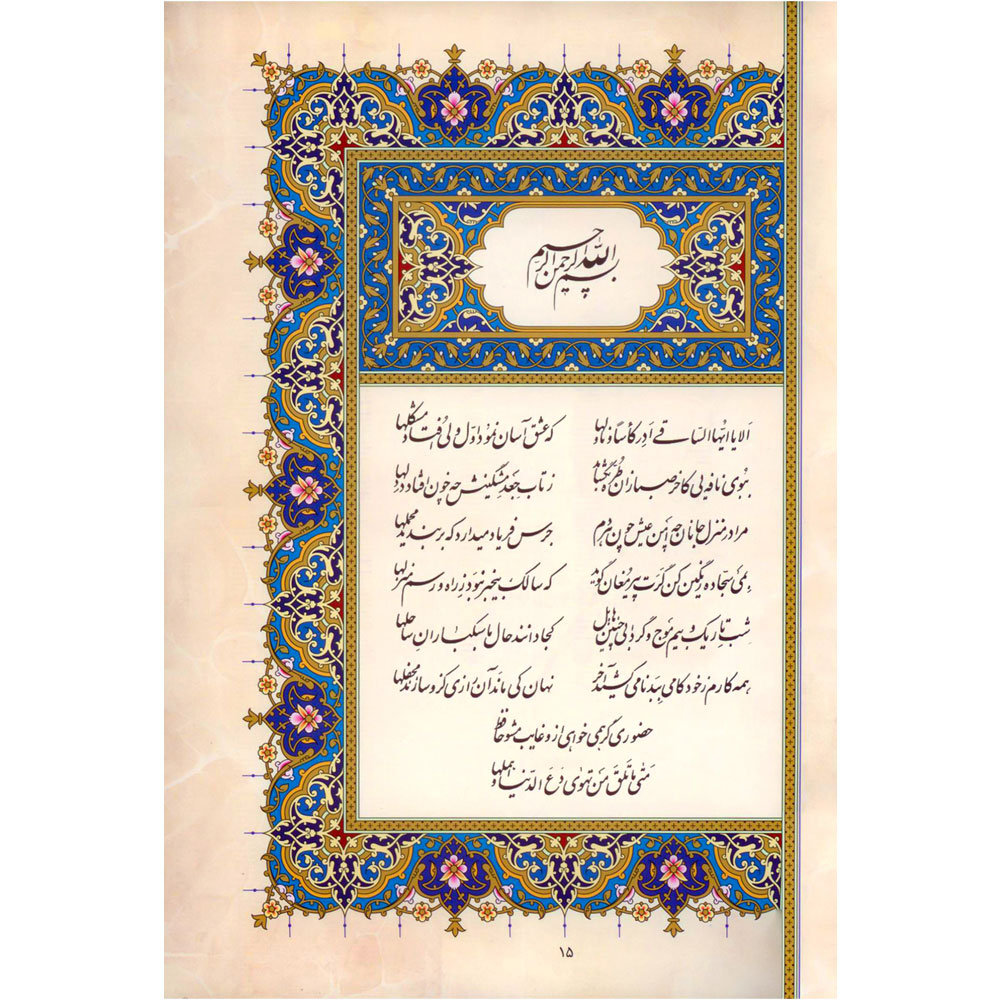 بسم الله الرحمن الرحیم
الا یا ایها الساقی ادر کأسا و ناولها که عشق آسان نمود اول ولی افتاد مشکلها
ببوی نافه یی کاخر صبا زان طره بگشاید ز تاب جعد مشکینش چه خون افتاد در دلها
مرا در منزل جانان چه امن عیش چون هر دم جرس فریاد میدارد که بربندید محملها
بمی سجاده رنگین کن گرت پیر مغان گوید که سالک بیخبر نبود ز راه و رسم منزلها
شب تاریک و بیم موج و گردابی چنین هایل کجا دانند حال ما سبکباران ساحلها
همه کارم ز خود کامی ببدنامی کشید آخر نهان کی ماند آن رازی کزو سازند محفلها
حضوری گر همی خواهی ازو غایب مشو حافظ
متی ما تلق من تهوی دع الدنیا و اهملها
۱۵